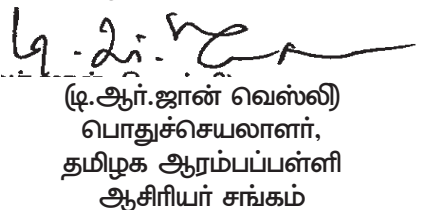 (டி.ஆர்.ஜான் வெஸ்லி)
பொதுச்செயலாளர்,
தமிழக ஆரம்பப்பள்ளி
ஆசிரியர் சங்கம்